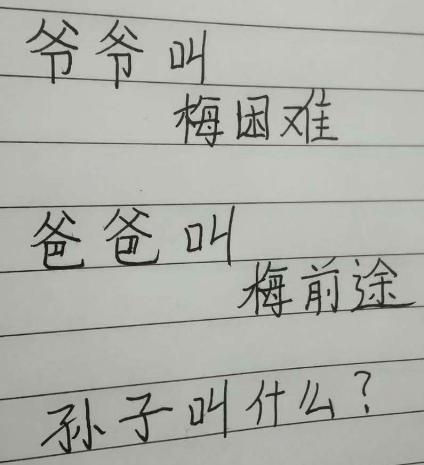 爷爷叫
梅困难
爸爸叫
梅前途
孙子叫什么？